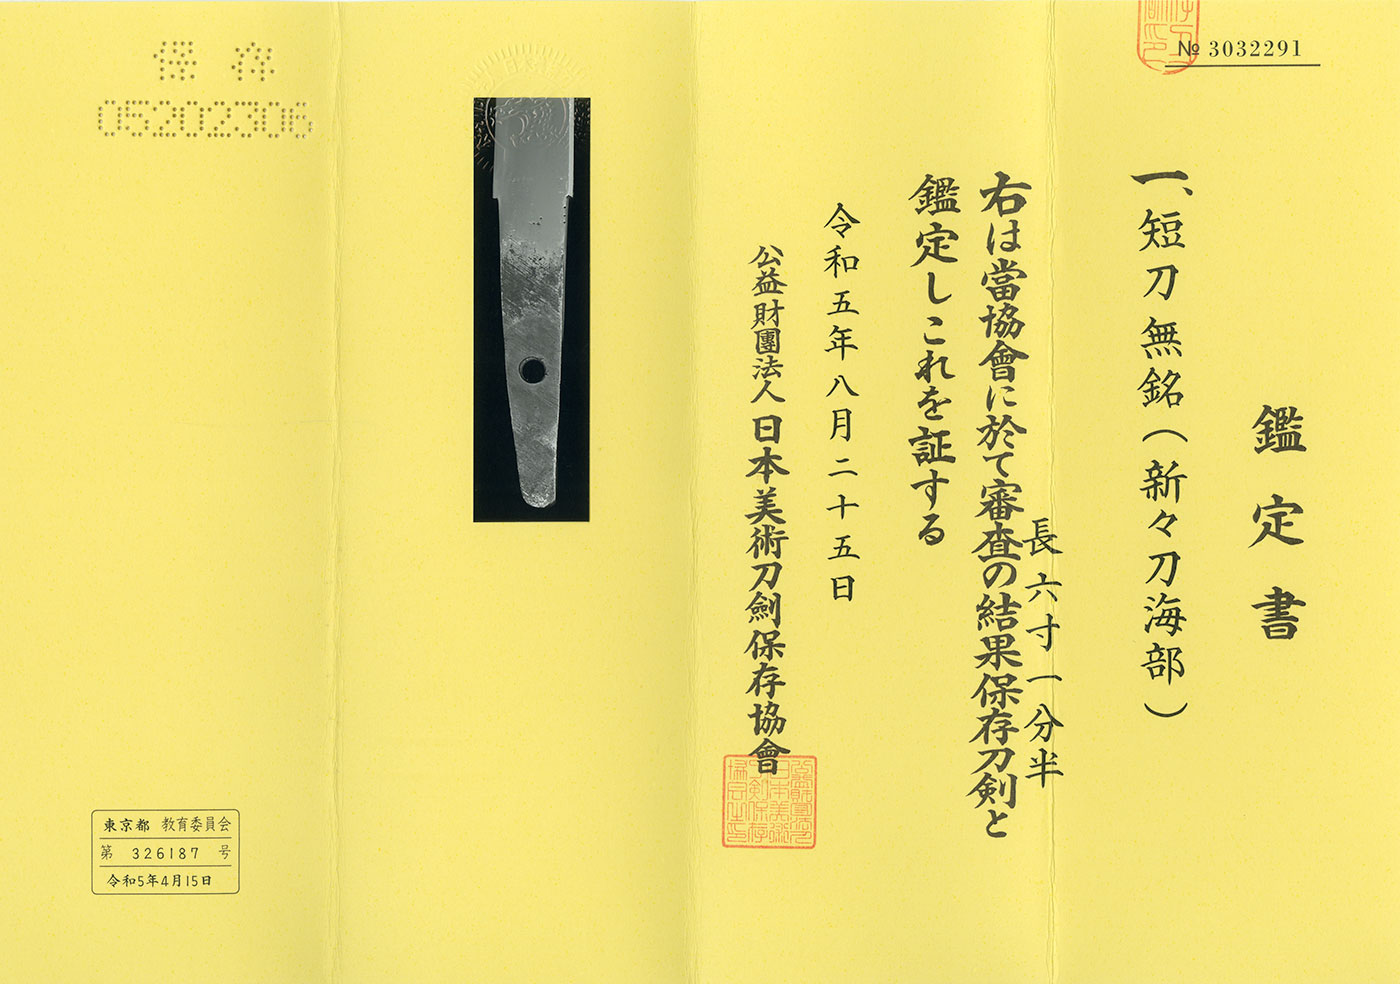 № 3032291
鑑定書
一、短刀 無銘（新々刀海部）
長 六寸一分半
右は當協會に於て審査の結果保存刀剣と
鑑定しこれを証する
令和五年八月二十五日
公益財團法人 日本美術刀劍保存協會
保存
05202306
東京都 教育委員会
第 326187 号
令和5年4月15日